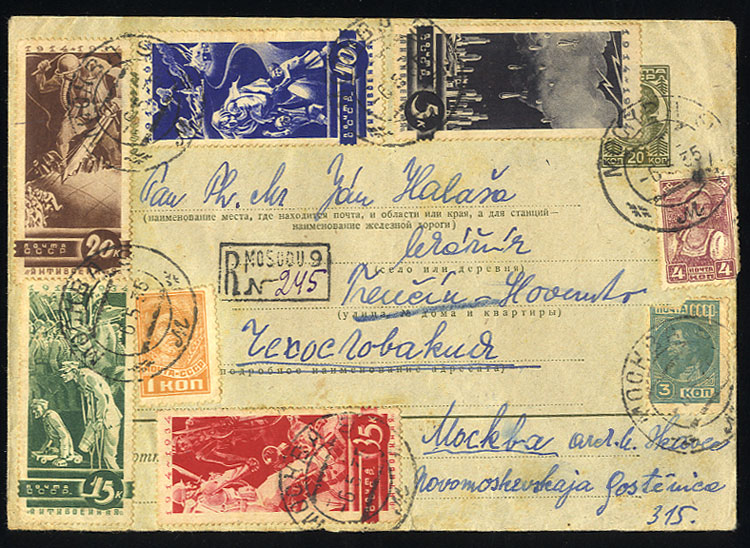 1914-19
20К
ПОЧТА
СССР
АНТИВОЕННАЯ
10К
ПОЧТА
СССР
5К
ПОЧТА
СССР
1914-19
20
КОП
Pan Ph. Mr Ján Halaša
(наименование места, где находится почта, и области или края, а для станций—
наименование железной дороги)
R MOSCOU 9
№ 245
(село или деревня)
(улица, № дома и квартиры)
Чехословакия
(подробное наименование адресата)
4 ПОЧТА 4
КОП
ПОЧТА СССР
3 КОП
1 КОП
МОСКВА
6 5 35
15К
ПОЧТА
СССР
АНТИВОЕННАЯ
5К
ПОЧТА
СССР
Москва
Novomoskevskaja Gostěnica
315.